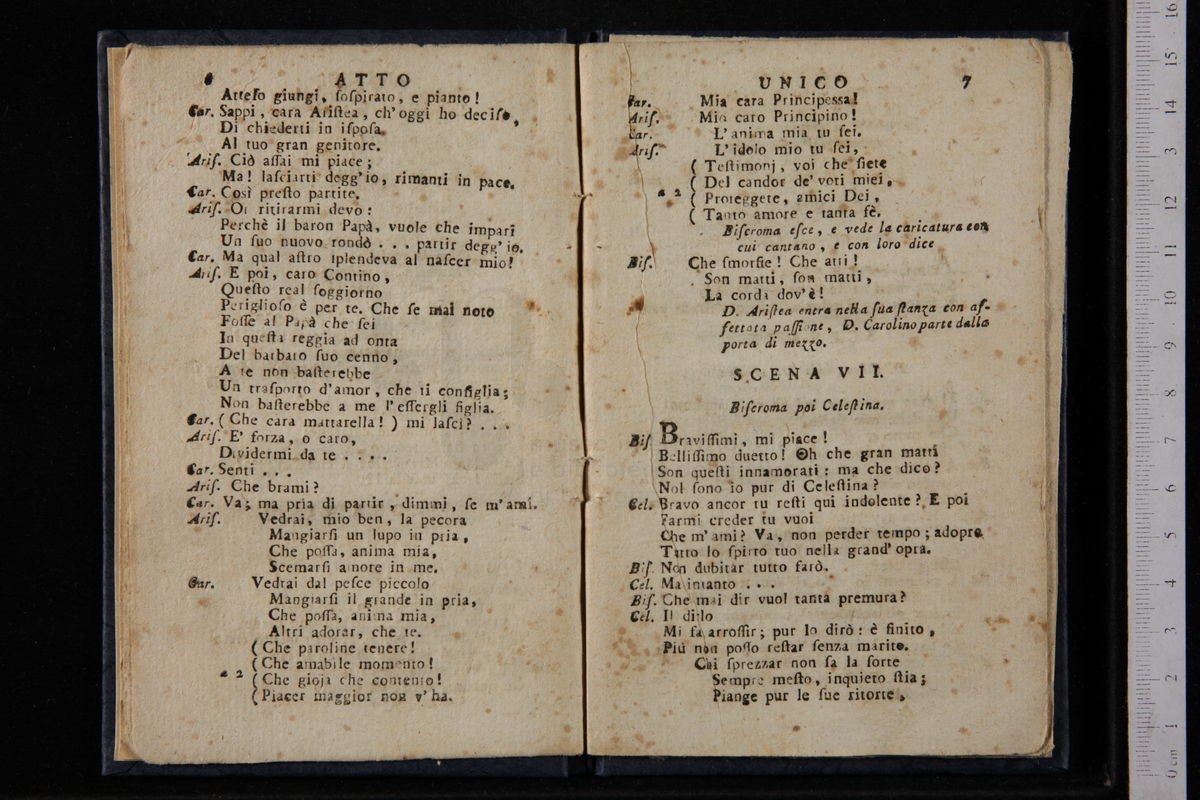 6 ATTO
Atteſo giungi, ſoſpirato, e pianto!
Car. Sappi, cara Ariſtea, ch'oggi ho deciſo,
Di chiederti in iſpoſa
Al tuo gran genitore.
Ariſ. Ciò aſſai mi piace;
Ma! laſciarti degg'io, rimanti in pace.
Car. Così preſto partite.
Ariſ. Or ritirarmi devo:
Perchè il baron Papà, vuole che impari
Un ſuo nuovo rondò . . . partir degg'io.
Car. Ma qual aſtro ſplendeva al naſcer mio!
Ariſ. E poi, caro Contino,
Queſto real ſoggiorno
Periglioſo è per te. Che ſe mai noto
Foſſe al Papà che ſei
In queſta reggia ad onta
Del barbaro ſuo cenno,
A te non baſterebbe
Un traſporto d'amor, che ti conſiglia;
Non baſterebbe a me l'eſſergli figlia.
Car. ( Che cara mattarella! ) mi laſci? . . .
Ariſ. E' forza, o caro,
Dividermi da te . . . .
Car. Senti . . .
Ariſ. Che brami?
Car. Va; ma pria di partir, dimmi, ſe m'ami.
Ariſ. Vedrai, mio ben, la pecora
Mangiarſi un lupo in pria,
Che poſſa, anima mia,
Scemarſi amore in me.
Car. Vedrai dal peſce piccolo
Mangiarſi il grande in pria,
Che poſſa, anima mia,
Altri adorar, che te.
( Che paroline tenere!
( Che amabile momento!
a 2 ( Che gioja che contento!
( Piacer maggior non v'ha.
UNICO 7
Car. Mia cara Principeſſa!
Ariſ. Mio caro Principino!
Car. L'anima mia tu ſei.
Ariſ. L'idolo mio tu ſei,
( Teſtimonj, voi che ſiete
( Del candor de' voti miei,
a 2 ( Proteggete, amici Dei,
( Tanto amore e tanta fè.
Biſcroma eſce, e vede la caricatura con
cui cantano, e con loro dice
Biſ. Che ſmorfie! Che atti!
Son matti, ſon matti,
La corda dov'è!
D. Ariſtea entra nella ſua ſtanza con af-
fettata paſſione, D. Carolino parte dalla
porta di mezzo.
SCENA VII.
Biſcroma poi Celeſtina.
Biſ Braviſſimi, mi piace!
Belliſſimo duetto! Oh che gran matti
Son queſti innamorati: ma che dico?
Nol ſono io pur di Celeſtina?
Cel. Bravo ancor tu reſti qui indolente? E poi
Farmi creder tu vuoi
Che m'ami? Va, non perder tempo; adopra
Tutto lo ſpirto tuo nella grand'opra.
Biſ. Non dubitar tutto farò.
Cel. Ma intanto . . .
Biſ. Che mai dir vuol tanta premura?
Cel. Il dirlo
Mi fa arroſſir; pur lo dirò: è finito,
Più non poſſo reſtar ſenza marito.
Chi ſprezzar non ſa la ſorte
Sempre meſto, inquieto ſtia;
Piange pur le ſue ritorte,
0 cm 1 2 3 4 5 6 7 8 9 10 11 12 3 14 15 16